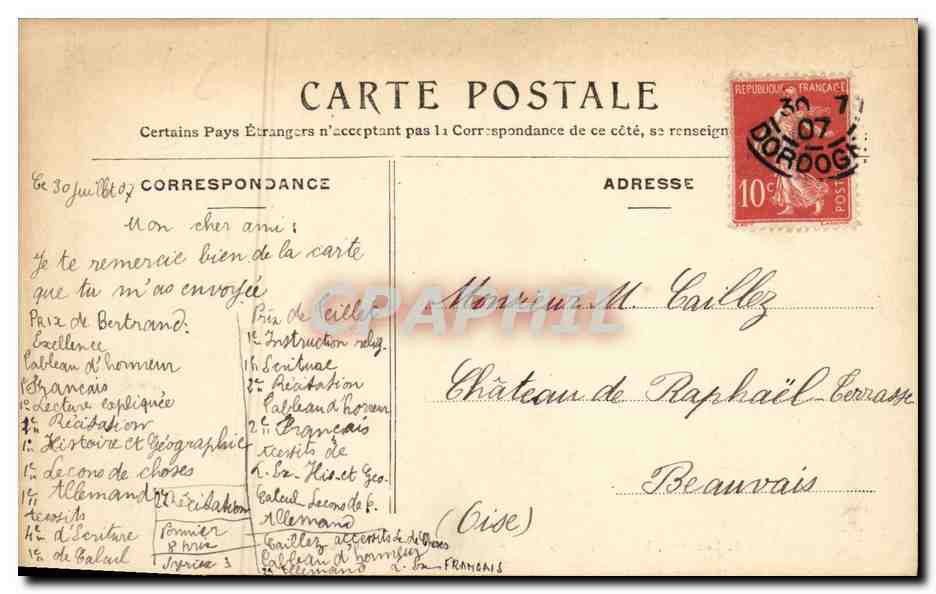 CARTE POSTALE
Certains Pays Étrangers n'acceptant pas la Correspondance de ce côté, se renseign
REPUBLIQUE FRANÇAISE
10c
POST
30 7
07
DORDOGN
CORRESPONDANCE
Le 30 Juillet 07
Mon cher ami:
Je te remercie bien de la carte
que tu m'as envoyée
Prix de Bertrand.
Excellence
Tableau d'honneur
Français
1er Lecture expliquée
2e Récitation
1er Histoire et Géographie
1er Leçons de choses
1er Allemand
Accessits
4e d'Ecriture
1er de Calcul
Récitation
Premier
8 prix
Prix de
1e Instruction relig.
1er Ecriture
2e Récitation
Tableau d'honneur
2e Français
Accessits de
L. Ex. His. et Geo.
Calcul Leçons de
Allemand
Caillez accessits de
Tableau d'honneur
Allemand L. Ex FRANCAIS
ADRESSE
Monsieur M. Caillez
Château de Raphaël-Terrasse
Beauvais
(Oise)
CPAPHIL